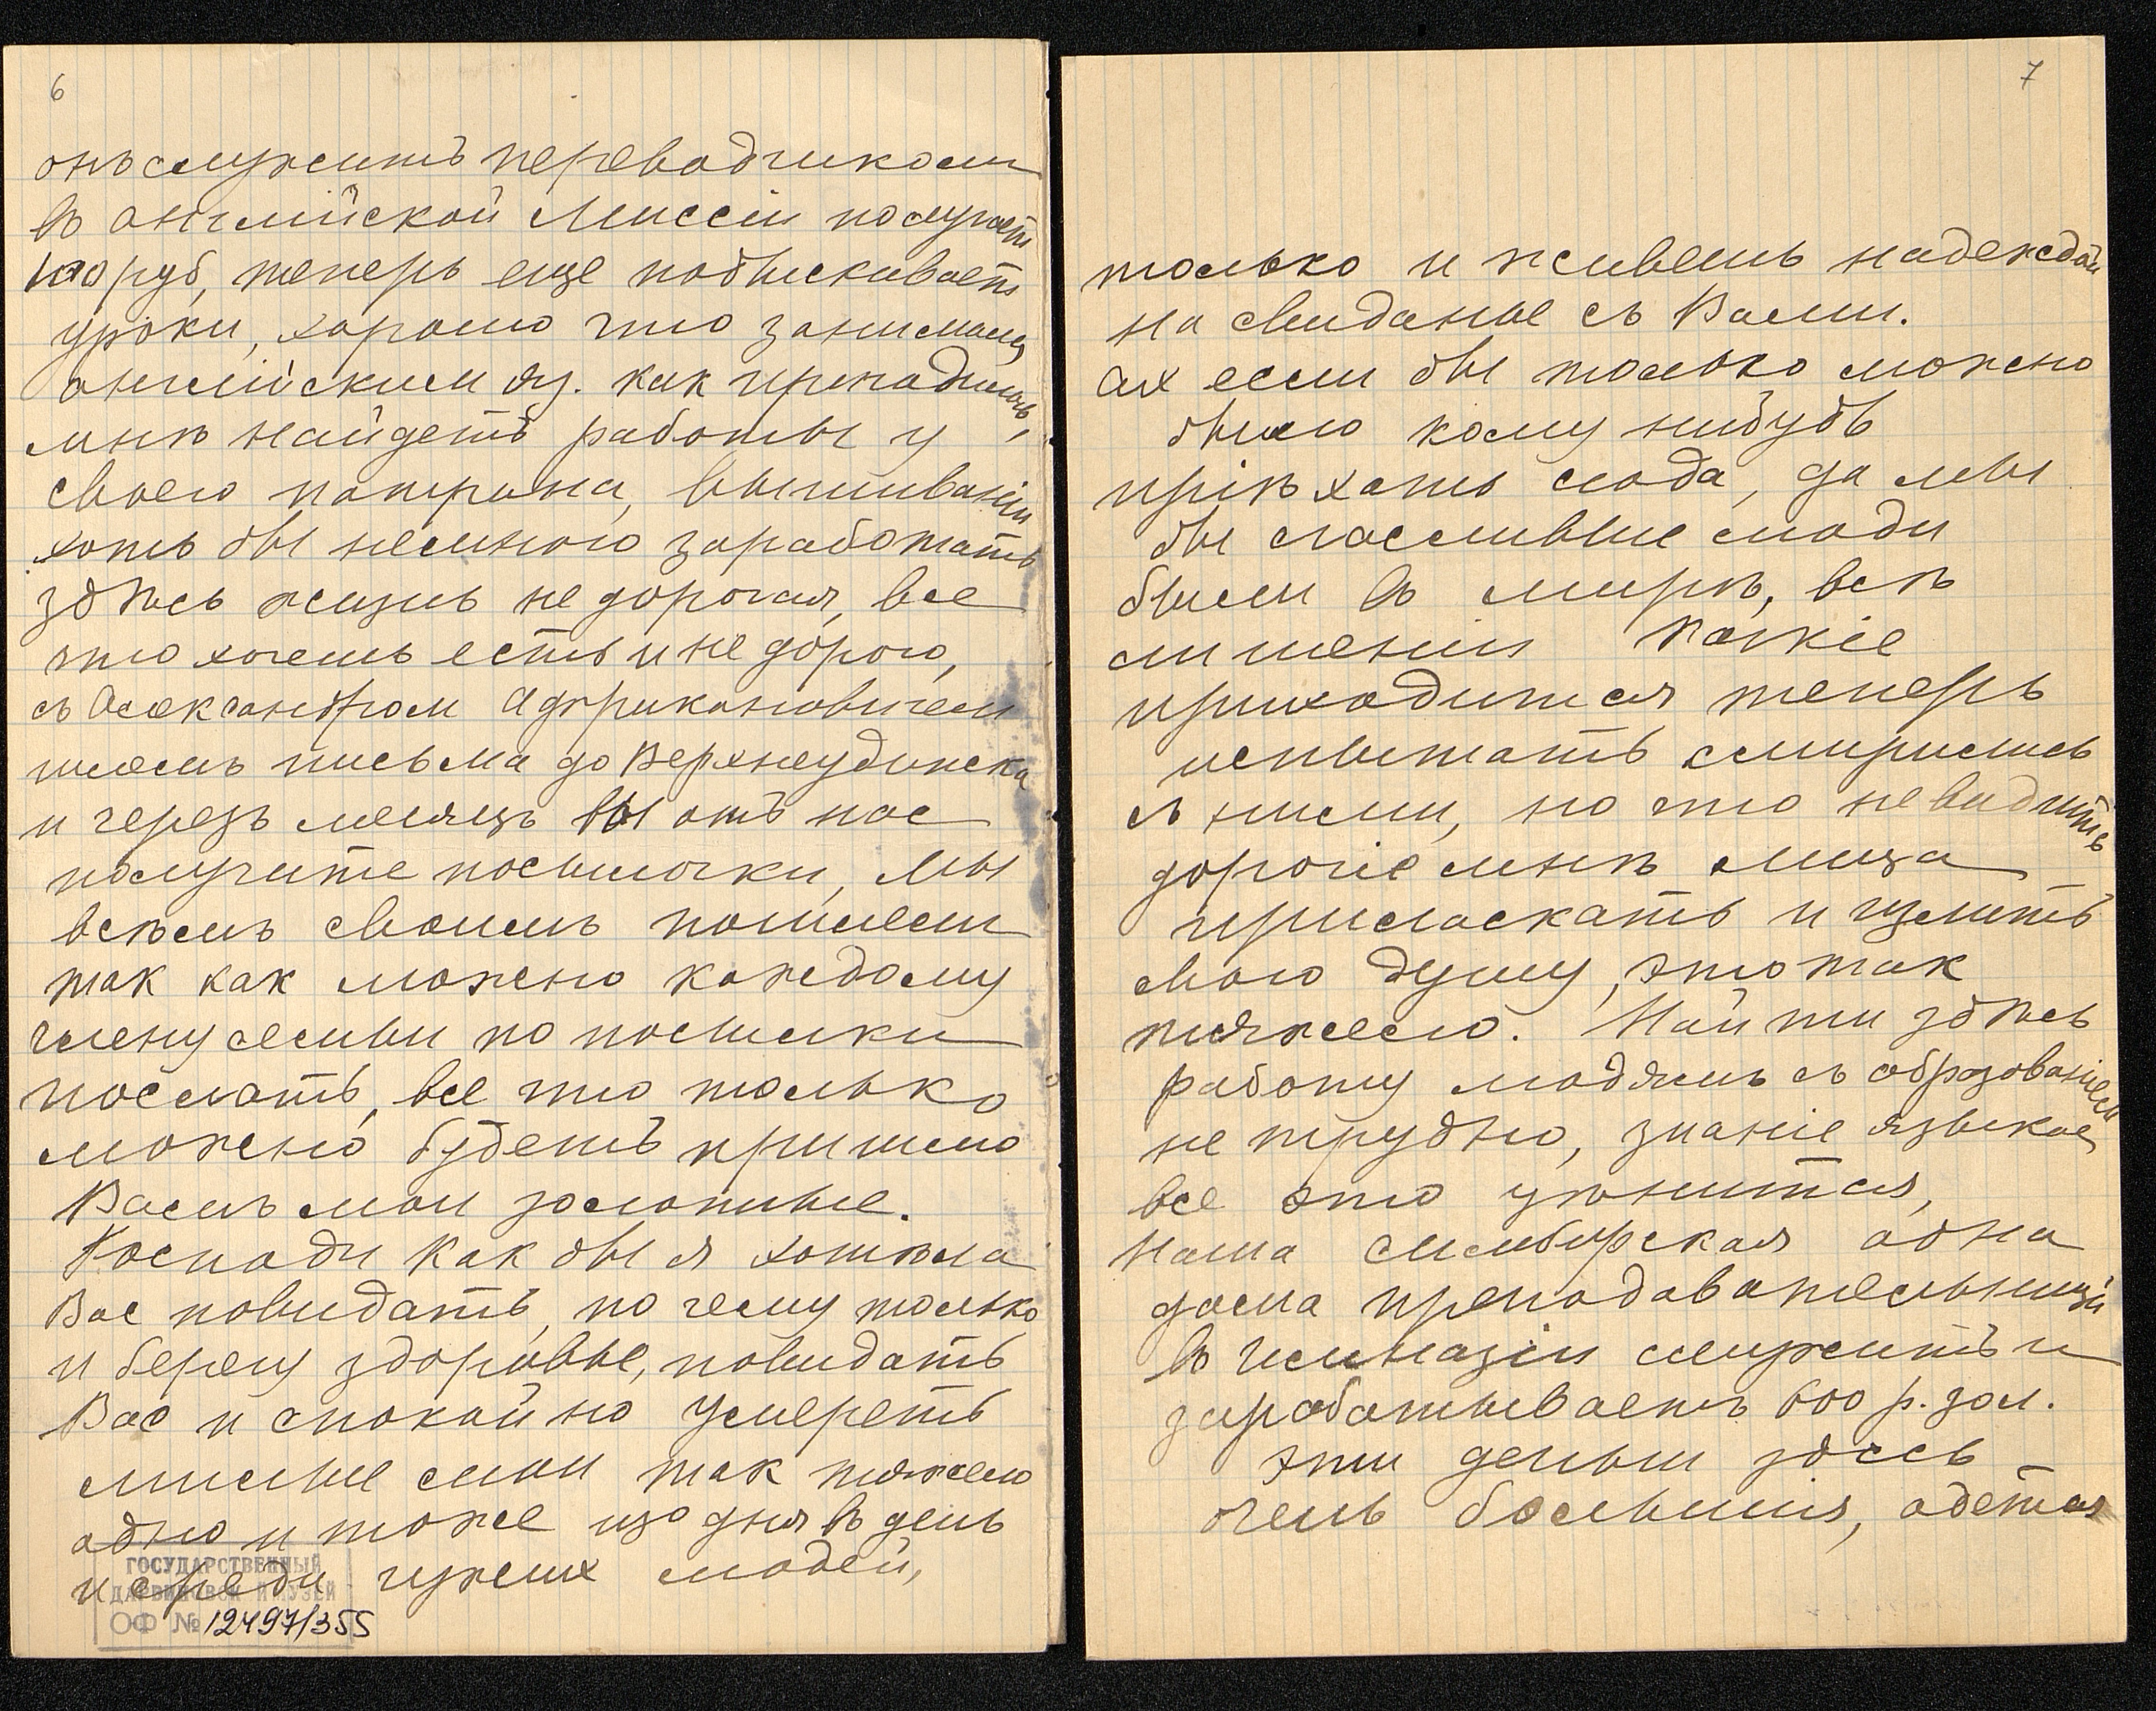 6
онъ служитъ переводчиком
въ английской Миссіи получает
руб, теперь еще подыскивает
уроки, хорошо что занимаюсь
английским яз. как
мнѣ найдетъ работы у
своего патрона, вышиванiи
хоть бы немного заработать
здѣсь жизнь не дорогая, все
что хочешь есть и не дорого,
съ Александром Африкановичем
шлемъ письма до Верхнеудинска
и черезъ месяцъ вы отъ нас
получите посылочки, мы
всѣмъ своимъ пошлем
так как можно каждому
члену семьи по посылки
послать, все что только
можно будетъ пришлю
Вамъ мои золотые.
Господи как бы я хотѣла
Вас повидать, по чему только
и берегу здоровье, повидать
Вас и спокойно умереть
милые мои так тяжело
одно и тоже изо дня въ день
и среди чужих людей,
ГОСУДАРСТВЕННЫЙ
ДАРВИНОВСКИЙ МУЗЕЙ
ОФ № 12497/355
7
только и живешь надеждой
на свиданье съ Вами.
ах если бы только можно
было кому нибудь
прiѣхать сюда, да мы
бы счасливые люди
были въ мирѣ, всѣ
лишенiи какiе
приходится теперь
испытать смирились
съ ними, но что не видишь
дорогiе мнѣ лица
приласкать и излить
свою душу, это так
тяжело. Найти здѣсь
работу людямъ съ образованiем
не трудно, знанiе языков
все это ценится,
Наша симбирская одна
дама преподавательницей
въ гимназiи служитъ и
зарабатываетъ 600 р. зол.
эти деньги здесь
очень большiя, одѣтая